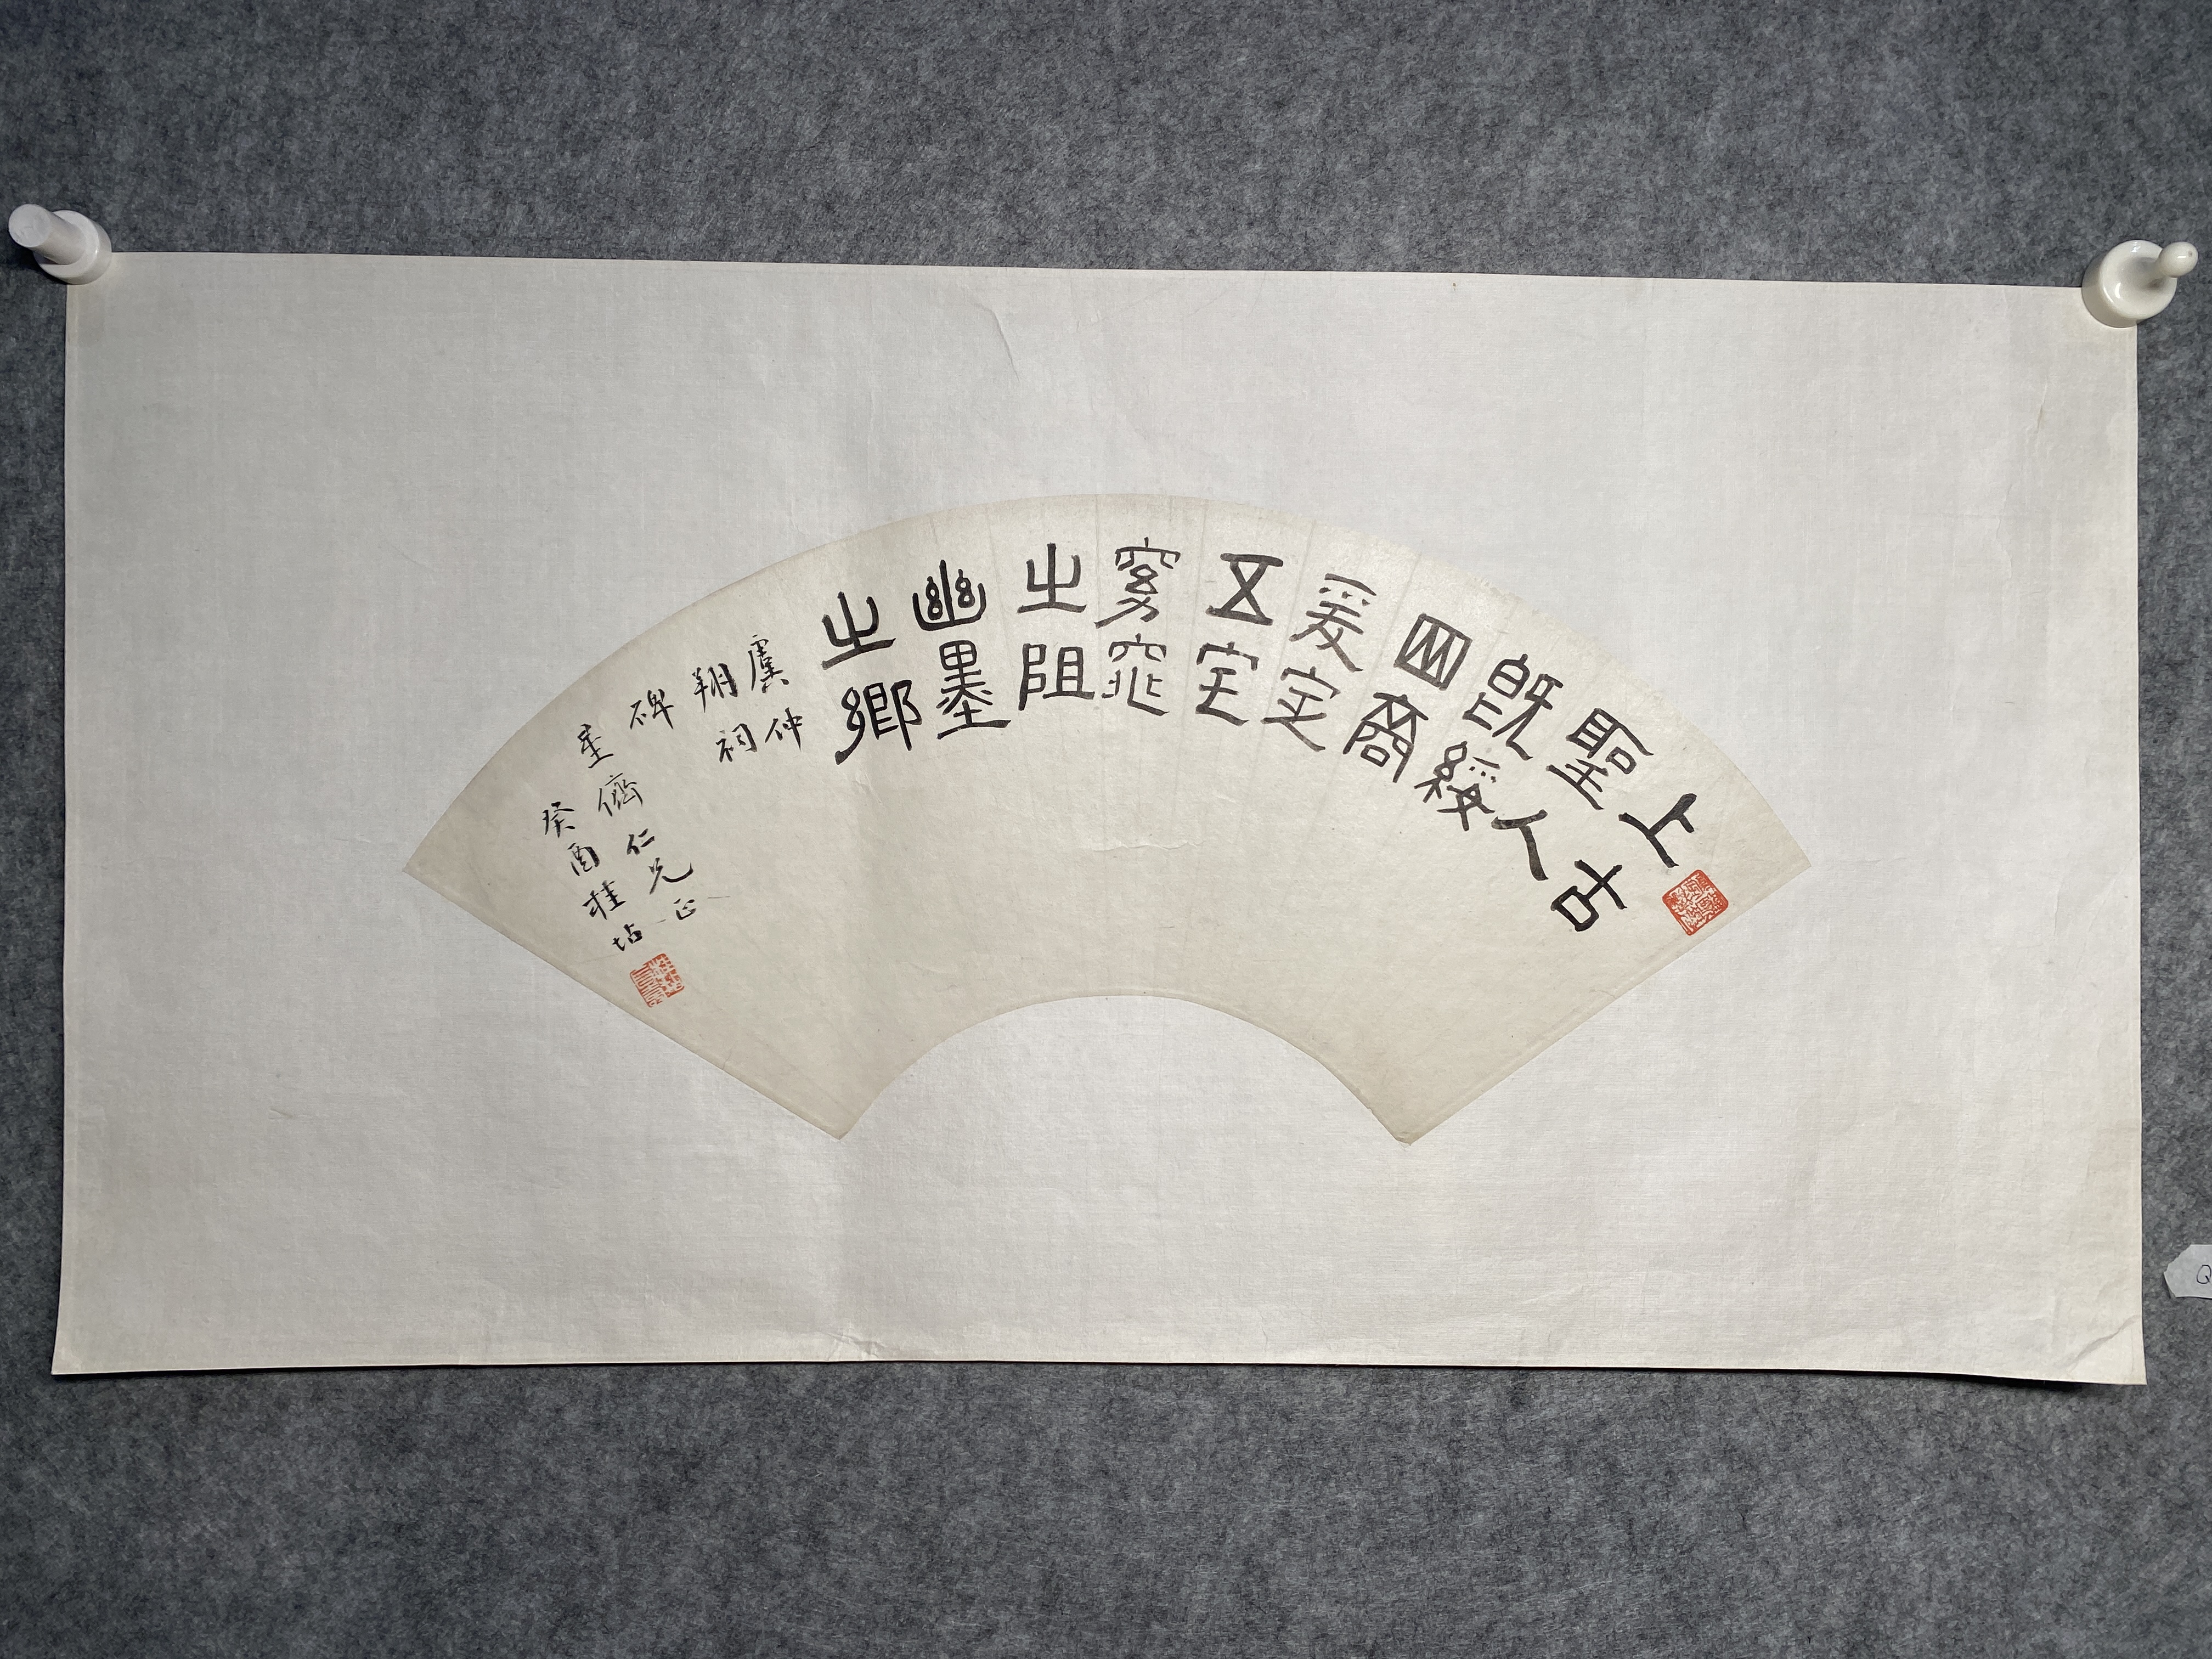 上古
聖人
既綏
四裔
爰定
五宅
窈窕
之阻
幽墨
之鄉
虞仲
翔祠
碑
儕仁兄正
癸酉桂坫